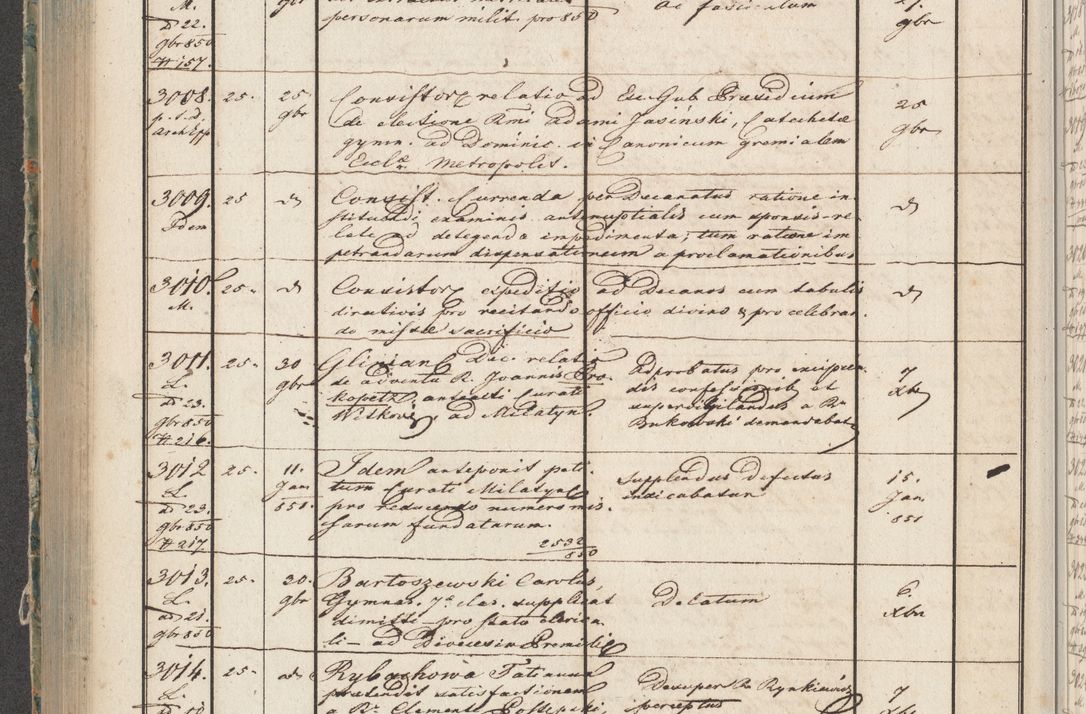 M.
d 22.
gbr 850
# 157.
gbr
personarum milit. pro 850
ac fasciculum
gbr
3008. 25. 25
gbr
Consistorz relatio ad Exc. Gub. Præsidium
de electione Rmi Adami Jasiński, Catechetæ
gymn. ad Dominic. in Canonicum gremialem
Eccl. Metropolis.
25
gbr
3009. 25
Idem
Consist. Currenda per Decanatus ratione in-
stituendi examinis antenuptialis cum sponsis re-
late ad detegenda impedimenta; tum ratione im
petrandarum dispensationum a proclamationibus
3010. 25.
M.
Consistorz expeditio ad Decanos cum tabulis
directivis pro recitando officio divino & pro celebran-
do missæ sacrificio
3011. 25. 30
gbr
L.
ad 23.
gbr 850
# 216.
Glinian. Dec. relatio
de adventu R. Joannis Pro
kopetz antealt Curati
ad Milatyn.
Adprobatus pro excipien
dis confessionib et
supervigilandus a Rn
Bukowski demandabatr
7
Xbr
3012 25. 11.
Jan
851.
L.
ad 23.
gbr 850
# 217
Idem anteponit peti
tum Curati Milatyn
pro reducendo numero mis
sarum fundatarum.
2532
850
Supplendus defectus
indicabatur
15.
Jan
851
3013. 25. 20.
gbr
L.
ad 21.
gbr 850
Bartoszewski Carolus,
Gymnas. 7æ clas. supplicat
dimitti pro statu clerica
li ad Dioecesin Premisl
Delatum
6.
Xbr
3014. 25.
L.
Rybackowa Tatianna
prætendit satisfactionem
a Rn Clemente
Desuper Rn Rynkiewicz
perceptus
7
Xbr